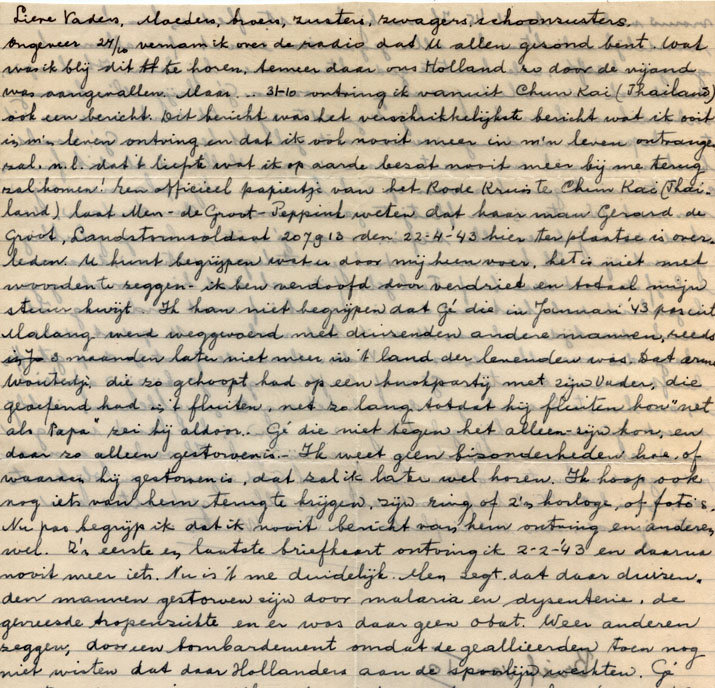 Lieve Vaders, Moeders, broers, zusters, zwagers, schoonzusters,
Ongeveer 24/10 vernam ik over de radio dat U allen gezond bent. Wat
was ik blij dit te horen, temeer daar ons Holland zo door de vijand
was aangevallen. Maar... 31-10 ontving ik vanuit Chun Kai (Thailand)
ook een bericht. Dit bericht was het verschrikkelijkste bericht wat ik ooit
in m'n leven ontving en dat ik ook nooit meer in m'n leven ontvangen
zal. n.l. dat 't liefste wat ik op aarde bezat nooit meer bij me terug
zal komen! Een officieel papiertje van het Rode Kruis te Chun Kai (Thai-
land) laat Mevr. de Groot-Peppink weten dat haar man Gerard de
Groot, Landstormsoldaat 207913 den 22-4-'43 hier ter plaatse is over-
leden. U kunt begrijpen wat er door mij heen voer, het is niet met
woorden te zeggen - ik ben verdoofd door verdriet en totaal mijn
stuur kwijt. Ik kan niet begrijpen dat Gé die in Januari '43 uit
Malang werd weggevoerd met duizenden andere mannen, reeds
3 maanden later niet meer in 't land der levenden was. Dat arme
Woutertje, die zo gehoopt had op een knokpartij met zijn Vader, die
geoefend had in 't fluiten, net zo lang totdat hij fluiten kon "net
als Papa" zei hij aldoor. Gé die niet tegen het alleen-zijn kon, en
daar zo alleen gestorven is. - Ik weet geen bizonderheden hoe, of
waaraan hij gestorven is, dat zal ik later wel horen. Ik hoop ook
nog iets van hem terug te krijgen, zijn ring of z'n horloge, of foto's.
Nu pas begrijp ik dat ik nooit bericht van hem ontving en anderen
wel. Z'n eerste en laatste briefkaart ontving ik 2-2-'43 en daarna
nooit meer iets. Nu is 't me duidelijk. Men zegt dat daar duizen-
den mannen gestorven zijn door malaria en dysenterie, de
gevreesde tropenziekte en er was daar geen obat. Weer anderen
zeggen, door een bombardement omdat de geallieerden toen nog
niet wisten dat daar Hollanders aan de spoorlijn werkten. Gé